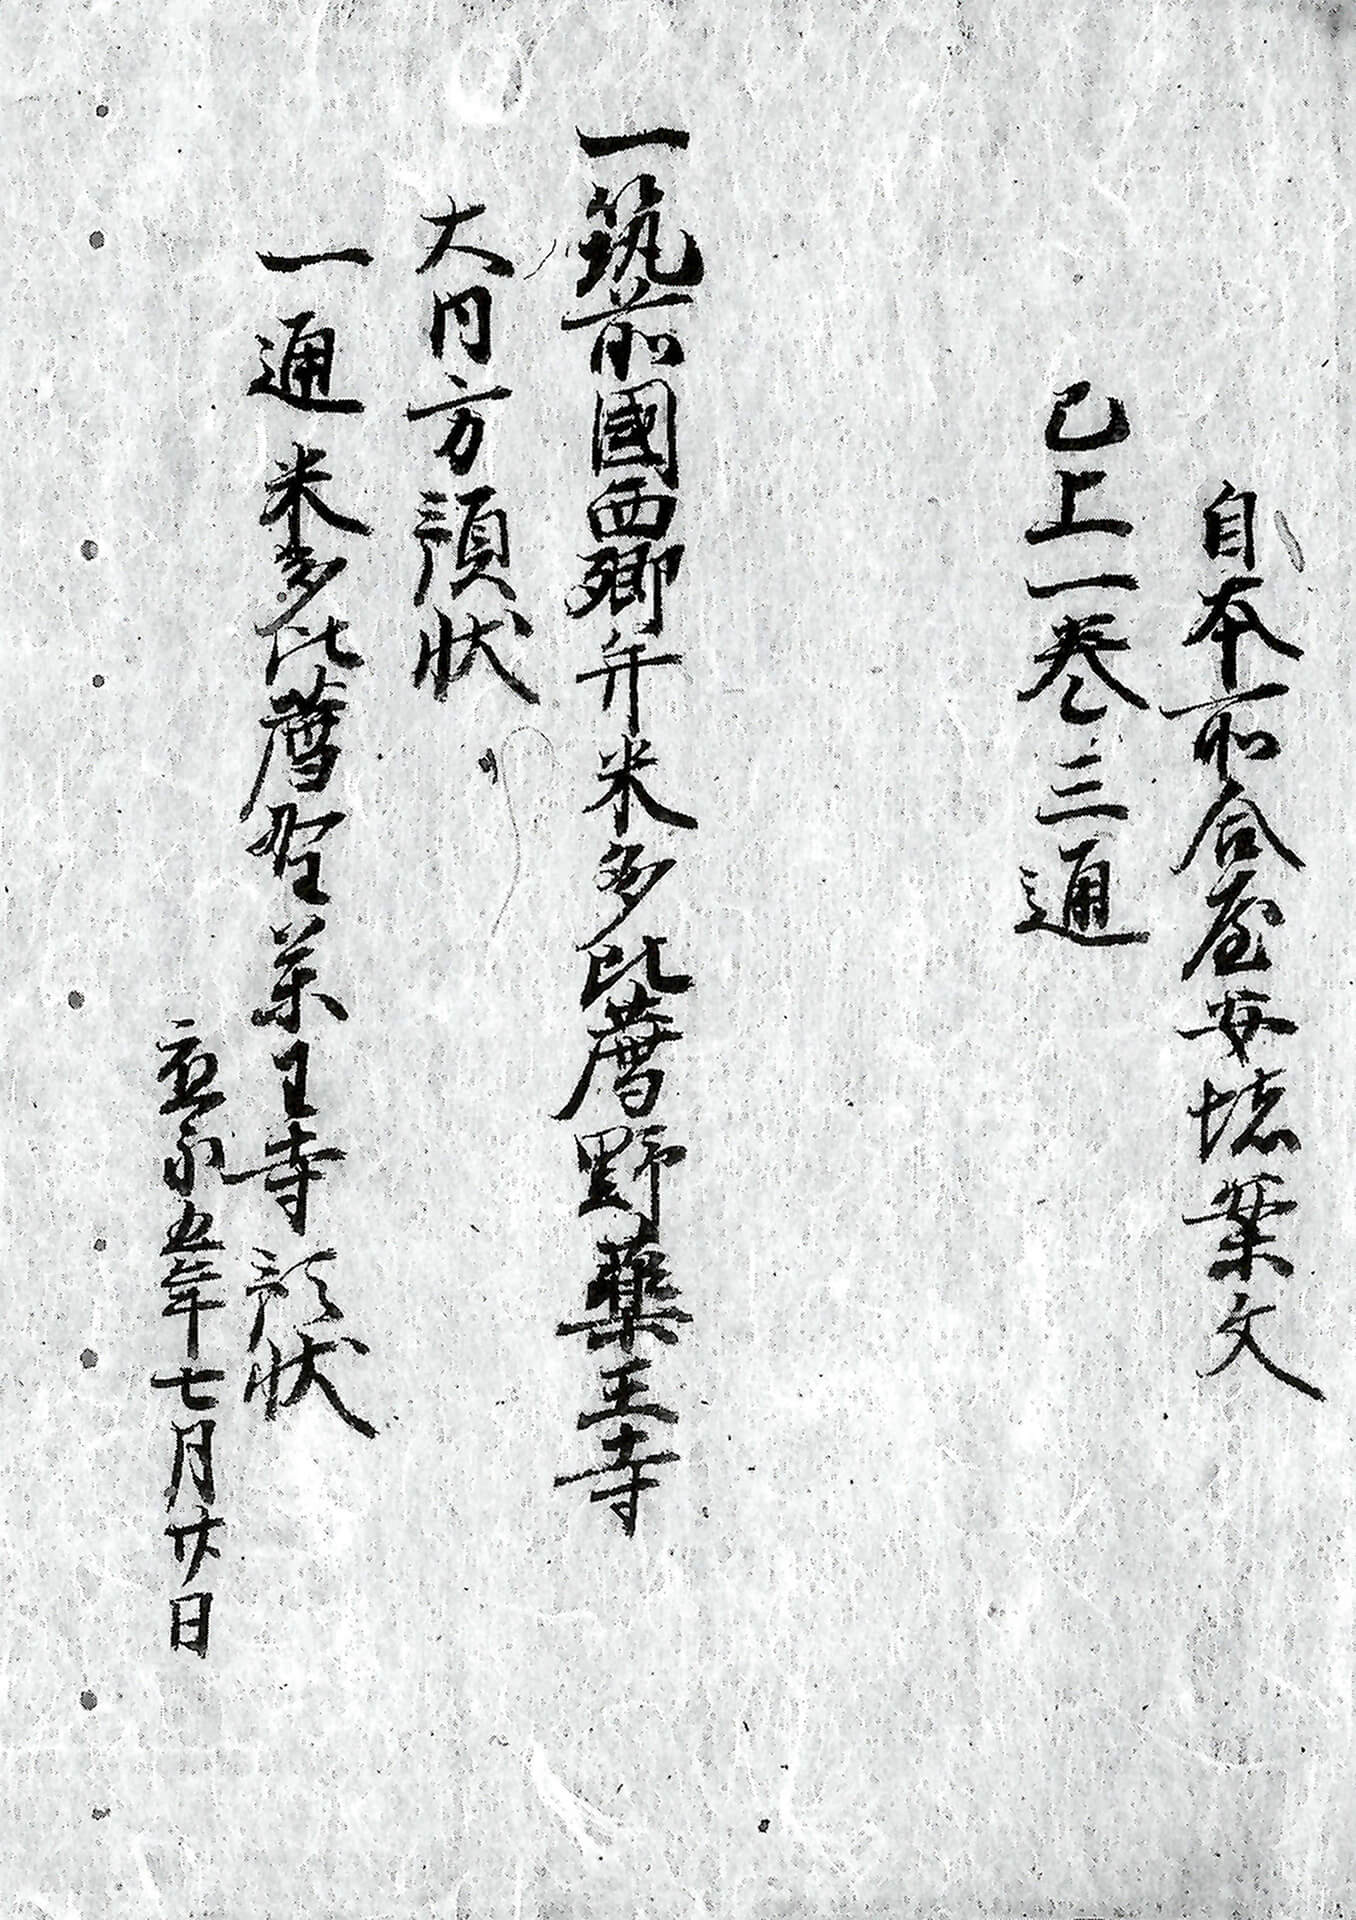 自本所合屋安堵案文
已上一巻三通
一筑前國西郷并米多比薦野藥王寺
大内方預状
一通米多比薦野薬王寺預状
應永五年七月廿日